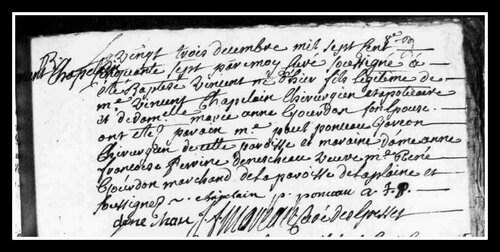 Le vingt trois decembre mil sept cent
cinquante sept par moy curé soussigné a
été baptisé vincent né d'hier fils légitime de
me vincent chapelain chirurgien et apoticaire
et de damelle marie anne gourdon son épouse.
ont été parain me paul ponceau garcon
chirurgien de cette paroisse et maraine dame anne
francoise perrine deneschau veuve me rené
gourdon marchand de la paroisse de la plaine et
soussignez chapelain p. ponceau a. f. p.
deneschau